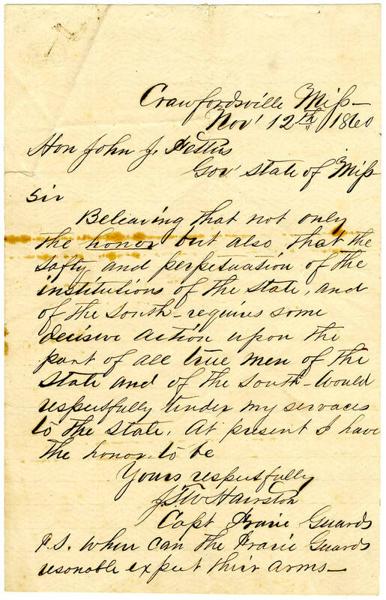 Crawfordsville Miss
Nov' 12th 1860
Hon John J. Pettus
Gov' State of Miss
Sir
Beleaving that not only
the honor but also that the
safty and perpetuation of the
institutions of the state, and
of the South - requires some
decisive action upon the
part of all true men of the
State and of the South - would
respectfully tender my servaces
to the State. At present I have
the honor to be
Yours respectfully
J. T. W. Hairston
Capt Praric Guards
P.S. When can the Praric Guards
resonable expect thir arms -